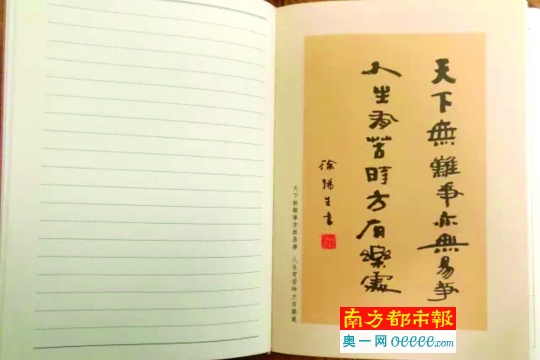 天下無難事亦無易事
人生有苦時方有樂處
徐揚生書
天下無難事亦無易事 人生有苦時方有樂處
南方都市報
奥一网oeeee.com